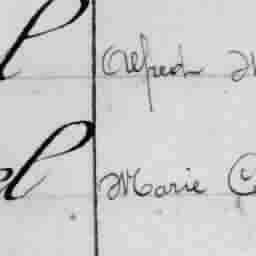 l Alfred
el Marie